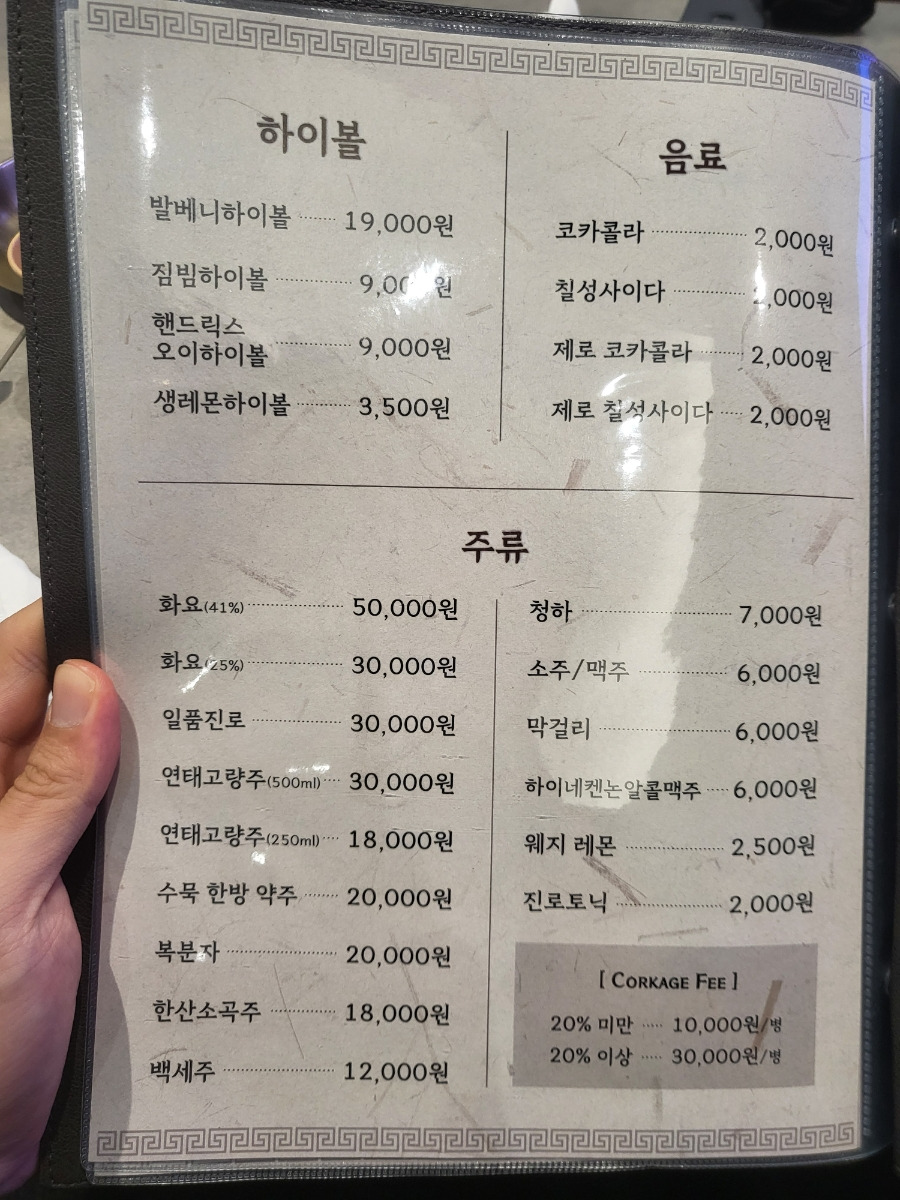 하이볼
발베니하이볼 ······· 19,000원
짐빔하이볼 ·············· 원
핸드릭스
오이하이볼 ·············· 9,000원
생레몬하이볼 ·········· 3,500원
음료
코카콜라 ··················· 2,000원
칠성사이다 ·············· 2,000원
제로 코카콜라 ········ 2,000원
제로 칠성사이다 ···· 2,000원
주류
화요(41%) ··················· 50,000원
화요(25%) ··················· 30,000원
일품진로 ·················· 30,000원
연태고량주(500ml) ···· 30,000원
연태고량주(250ml) ···· 18,000원
수묵 한방 약주 ······· 20,000원
복분자 ······················ 20,000원
한산소곡주 ··············· 18,000원
백세주 ······················ 12,000원
청하 ·························· 7,000원
소주/맥주 ················· 6,000원
막걸리 ······················ 6,000원
하이네켄논알콜맥주 ···· 6,000원
웨지 레몬 ················· 2,500원
진로토닉 ·················· 2,000원
[ CORKAGE FEE ]
20% 미만 ····· 10,000원/병
20% 이상 ····· 30,000원/병